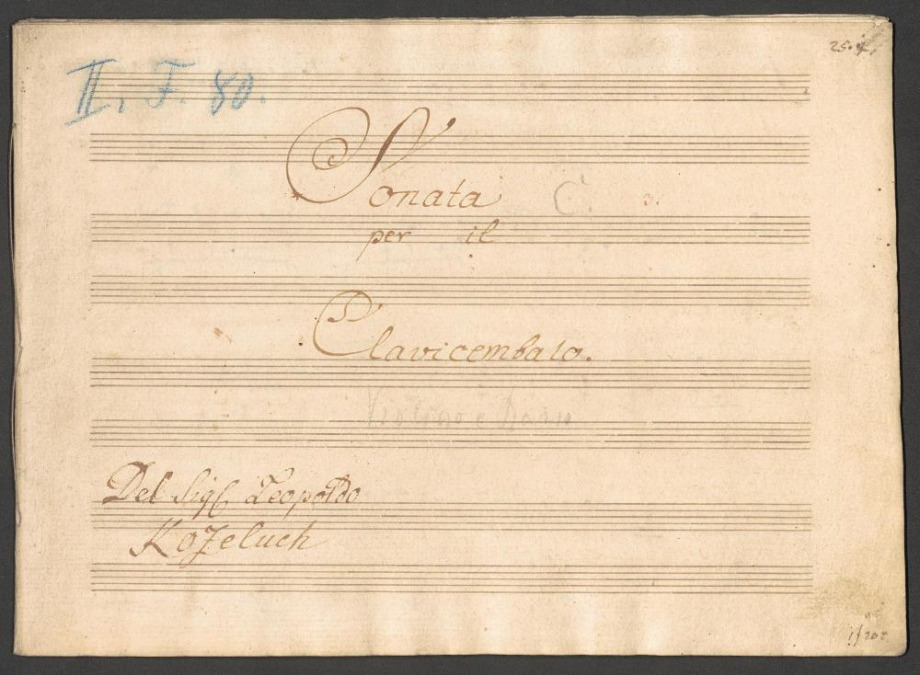 II. F. 80.
Sonata C.
per il
Clavicembalo.
Violino e Basso
Del Sigl Leopoldo
Kozeluch